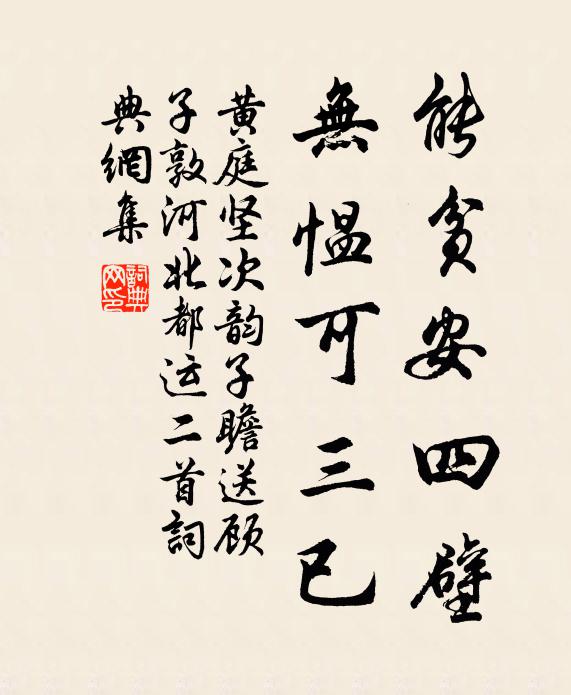 能貧安四壁
無愠可三已
黄庭坚次韵子瞻送顾
子敦河北都运二首詞
典網集
詞典网印